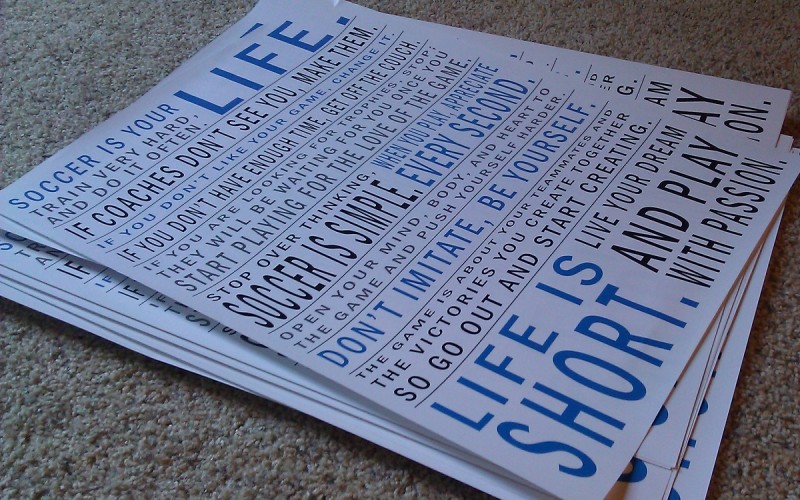 SOCCER IS YOUR LIFE.
TRAIN VERY HARD,
AND DO IT OFTEN.
IF COACHES DON'T SEE YOU, MAKE THEM.
IF YOU DON'T LIKE YOUR GAME, CHANGE IT.
IF YOU DON'T HAVE ENOUGH TIME, GET OFF THE COUCH.
IF YOU ARE LOOKING FOR TROPHIES, STOP;
THEY WILL BE WAITING FOR YOU ONCE YOU
START PLAYING FOR THE LOVE OF THE GAME.
STOP OVER THINKING, WHEN YOU PLAY, APPRECIATE
SOCCER IS SIMPLE. EVERY SECOND.
OPEN YOUR MIND, BODY, AND HEART TO
THE GAME AND PUSH YOURSELF HARDER.
DON'T IMITATE, BE YOURSELF.
THE GAME IS ABOUT YOUR TEAMMATES AND
THE VICTORIES YOU CREATE TOGETHER
SO GO OUT AND START CREATING.
LIFE IS SHORT. LIVE YOUR DREAM
AND PLAY
WITH PASSION.
G.
AM
AY
ON.